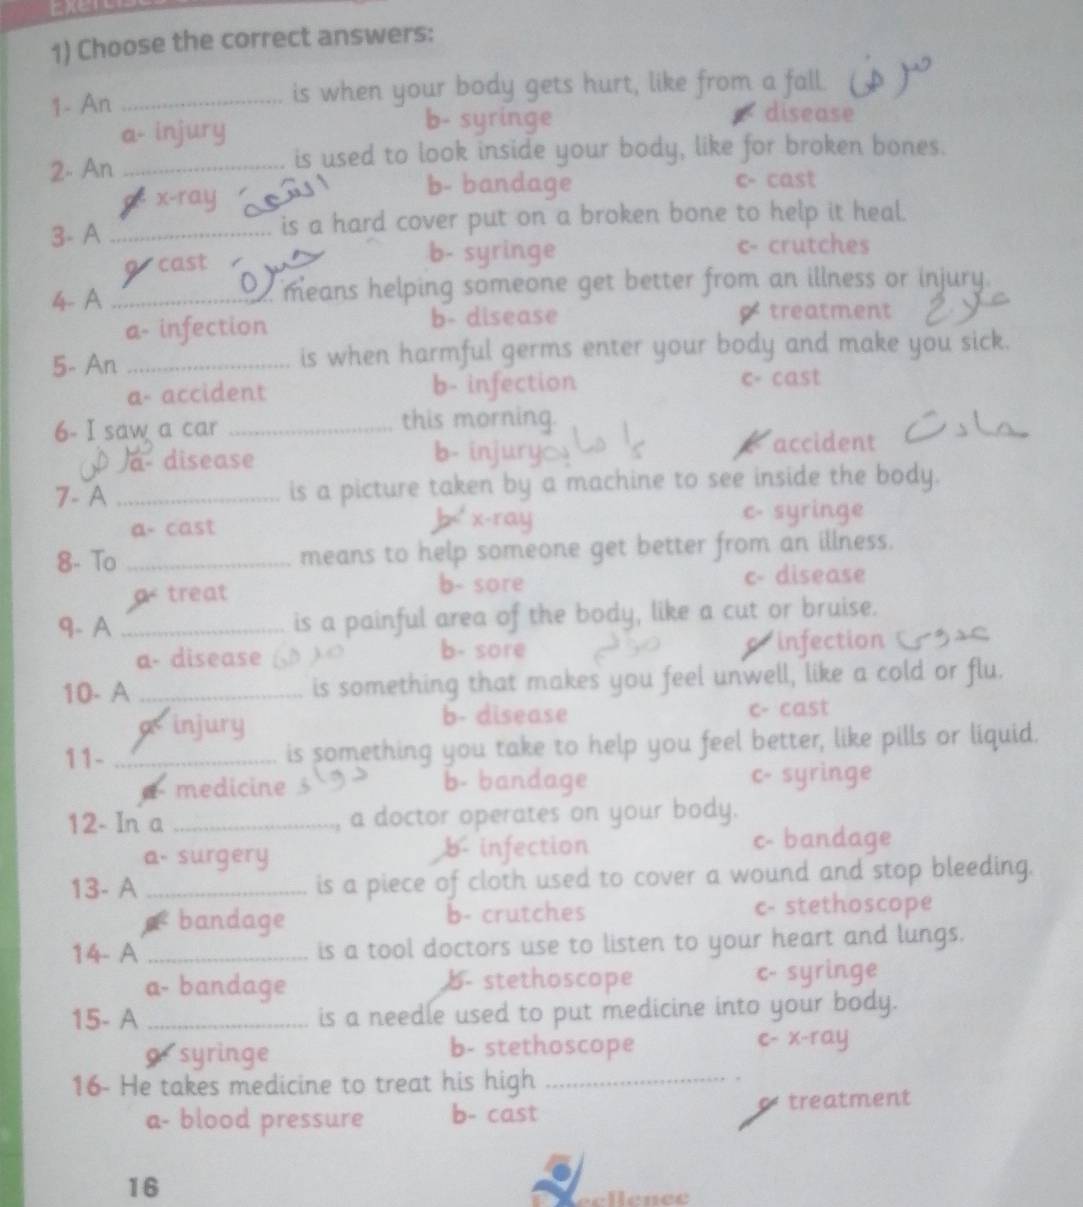 1) Choose the correct answers:
1- An ............ is when your body gets hurt, like from a fall. مرض
a- injury b- syringe disease
2- An ............ is used to look inside your body, like for broken bones.
x-ray الشعة b- bandage c- cast
3- A ............ is a hard cover put on a broken bone to help it heal.
cast b- syringe c- crutches
4- A ............ means helping someone get better from an illness or injury.
a- infection b- disease treatment علاج
5- An ............ is when harmful germs enter your body and make you sick.
a- accident b- infection c- cast
6- I saw a car ............ this morning.
a- disease b- injury accident حادث
7- A ............ is a picture taken by a machine to see inside the body.
a- cast b- x-ray c- syringe
8- To ............ means to help someone get better from an illness.
a- treat b- sore c- disease
9- A ............ is a painful area of the body, like a cut or bruise.
a- disease مرض b- sore infection عدوى
10- A ............ is something that makes you feel unwell, like a cold or flu.
injury b- disease c- cast
11- ............ is something you take to help you feel better, like pills or liquid.
medicine دواء b- bandage c- syringe
12- In a ............, a doctor operates on your body.
a- surgery b- infection c- bandage
13- A ............ is a piece of cloth used to cover a wound and stop bleeding.
bandage b- crutches c- stethoscope
14- A ............ is a tool doctors use to listen to your heart and lungs.
a- bandage b- stethoscope c- syringe
15- A ............ is a needle used to put medicine into your body.
syringe b- stethoscope c- x-ray
16- He takes medicine to treat his high ............ .
a- blood pressure b- cast treatment
16